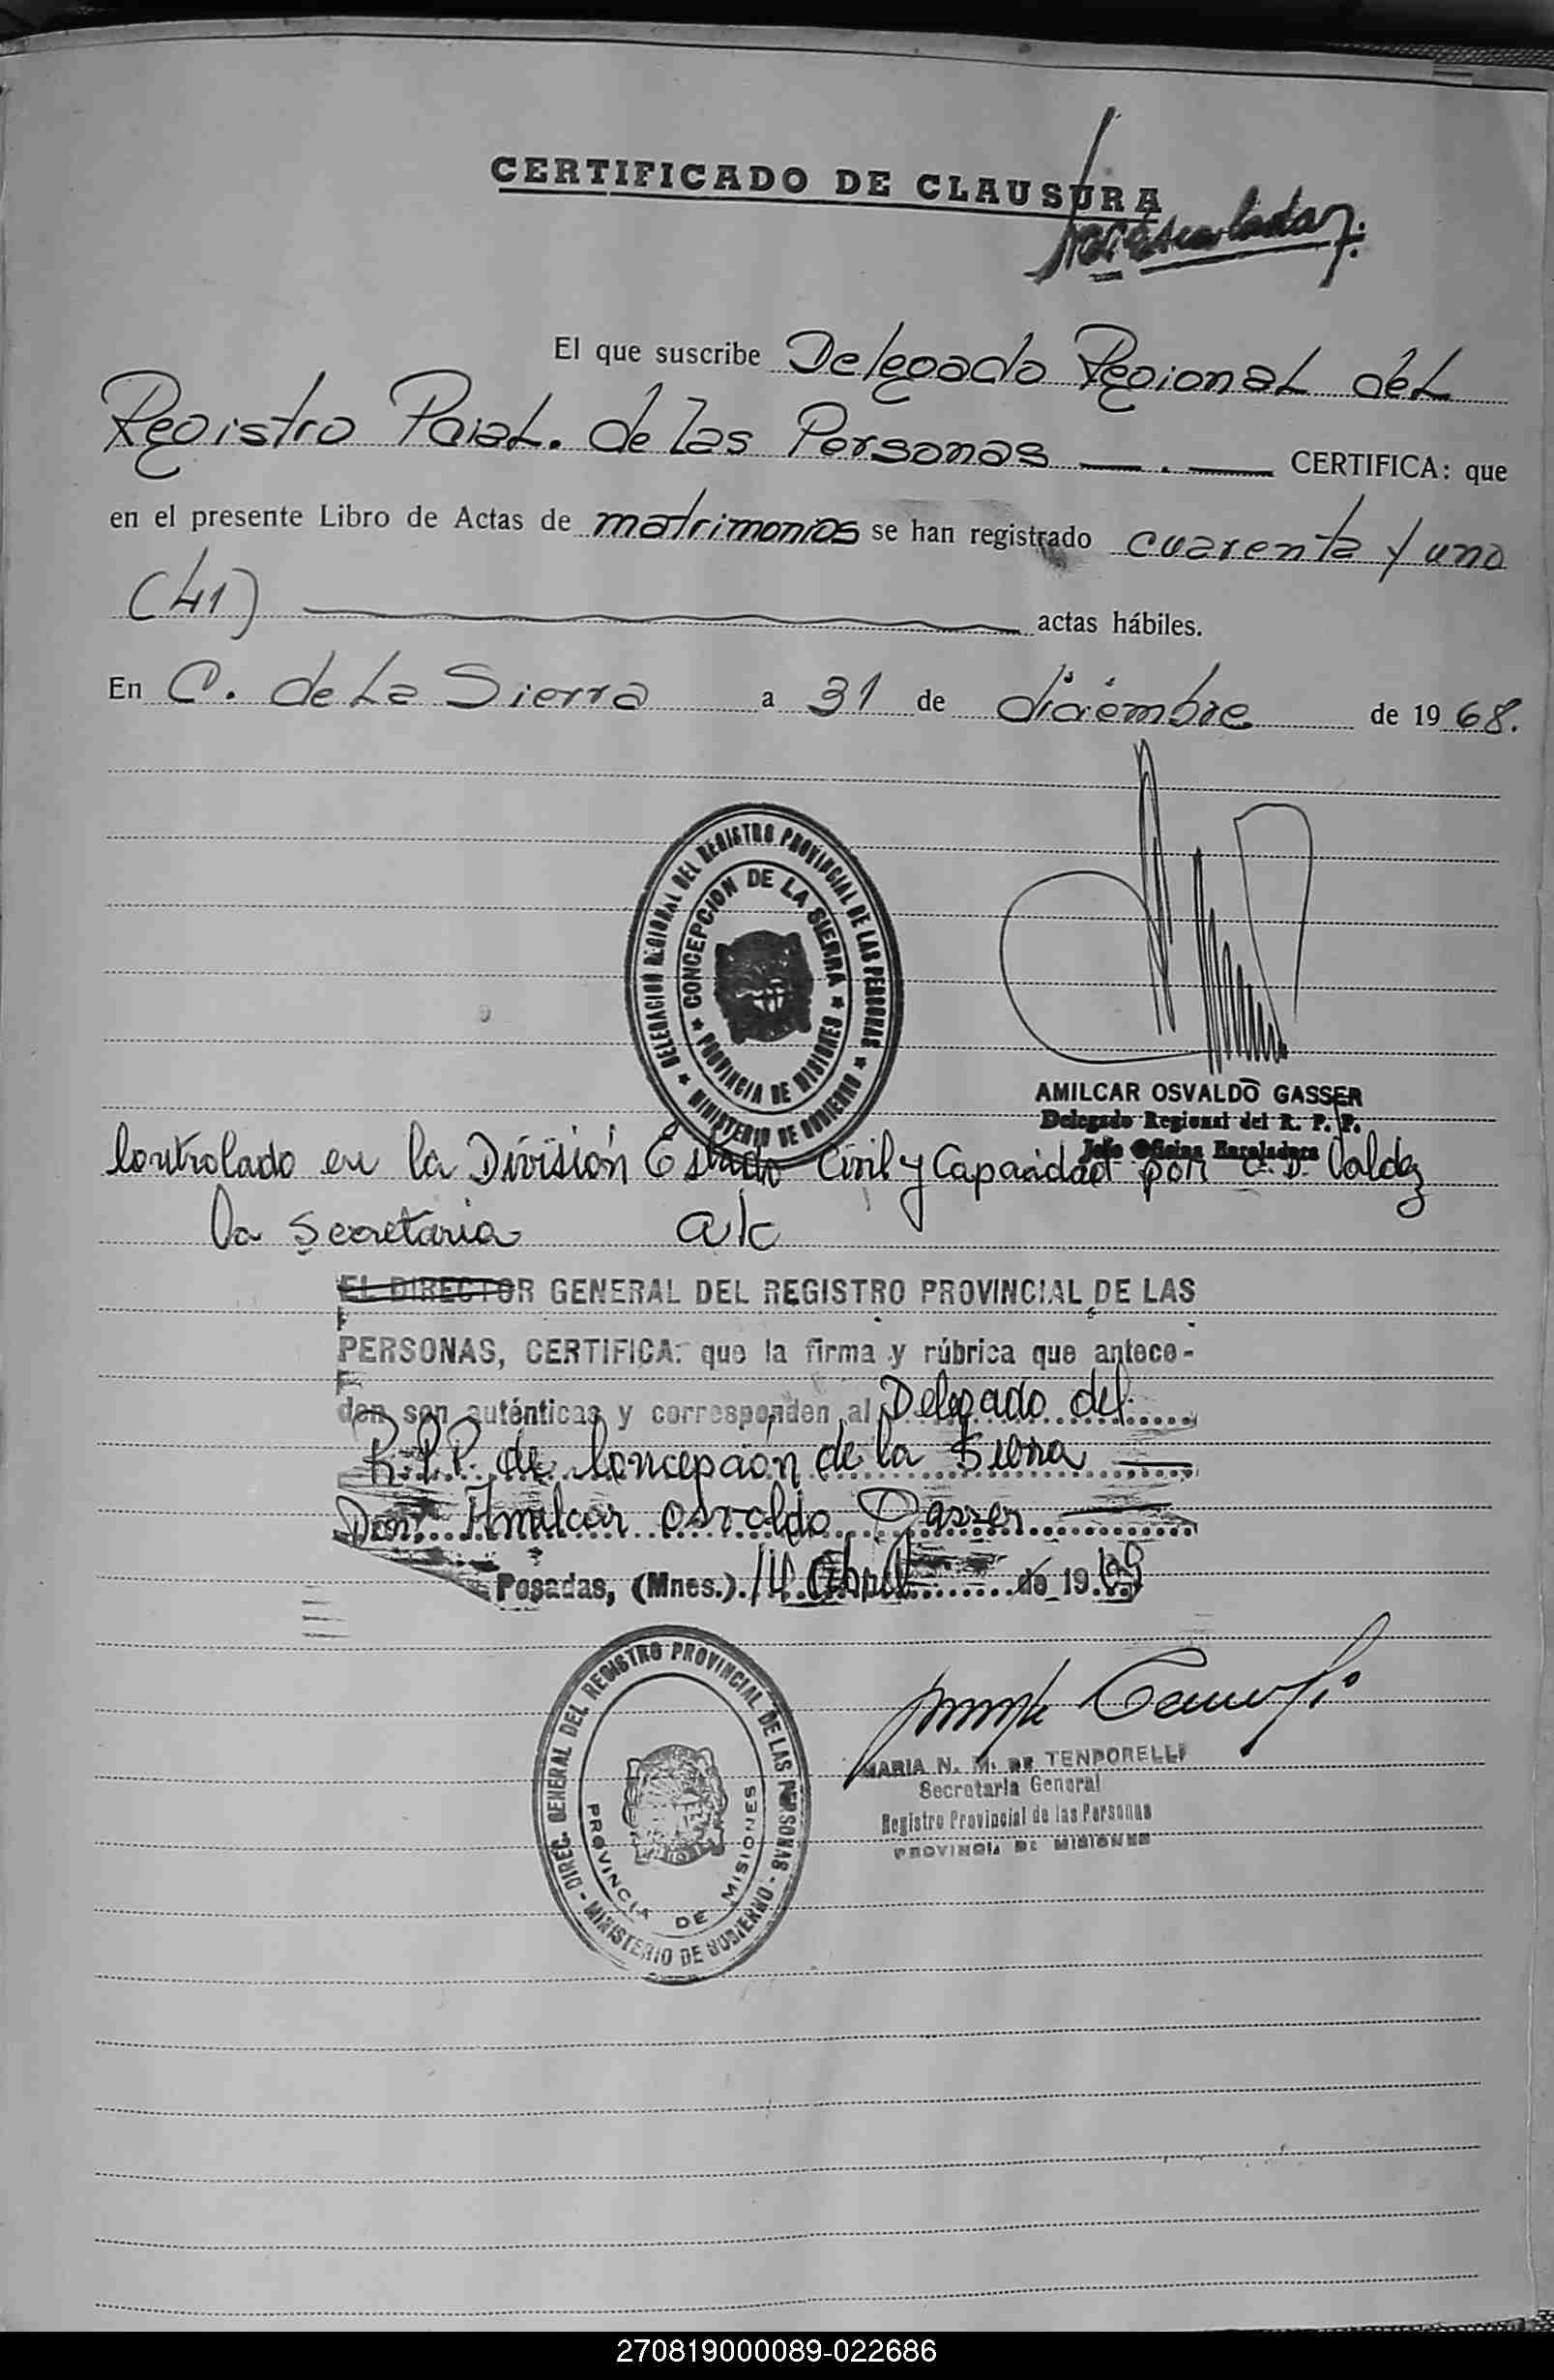 CERTIFICADO DE CLAUSURA
El que suscribe Delegado Regional del
Registro Pcial. de las Personas — . — CERTIFICA: que
en el presente Libro de Actas de matrimonios se han registrado cuarenta y uno
(41) actas hábiles.
En C. de La Sierra a 31 de diciembre de 1968.
DELEGACION REGIONAL DEL REGISTRO PROVINCIAL DE LAS PERSONAS
★ MINISTERIO DE GOBIERNO ★
CONCEPCION DE LA SIERRA
★ PROVINCIA DE MISIONES ★
AMILCAR OSVALDO GASSER
Delegado Regional del R. P. P.
Jefe Oficina Enroladora
Controlado en la División Estado Civil y Capacidad por C. D. Valdez
La Secretaria a/c
EL DIRECTOR GENERAL DEL REGISTRO PROVINCIAL DE LAS
PERSONAS, CERTIFICA: que la firma y rúbrica que antece-
den son auténticas y corresponden al Delegado del
R.P.P. de Concepción de la Sierra —
Don Amilcar Osvaldo Gasser —
Posadas, (Mnes.) 14 Abril de 1969
DIREC. GENERAL DEL REGISTRO PROVINCIAL DE LAS PERSONAS
- MINISTERIO DE GOBIERNO -
PROVINCIA DE MISIONES
MARIA N. M. DE TENDORELLI
Secretaria General
Registro Provincial de las Personas
PROVINCIA DE MISIONES
270819000089-022686